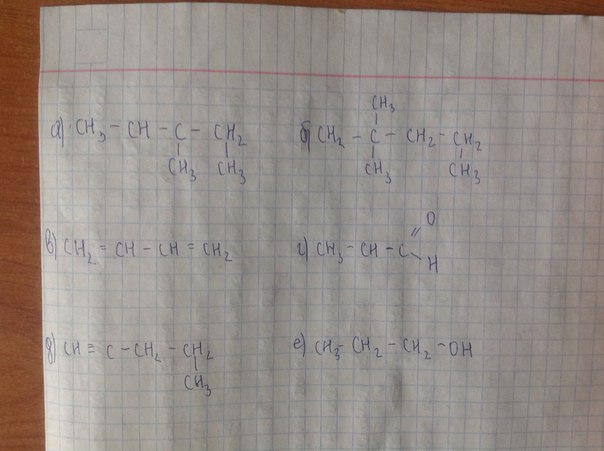 а) CH3 - CH - C - CH2
CH3 CH3
б) CH2 - C - CH2 - CH2
CH3
CH3 CH3
в) CH2 = CH - CH = CH2
г) CH3 - CH - C = O
- H
д) CH ≡ C - CH2 - CH2
CH3
е) CH3 - CH2 - CH2 - OH